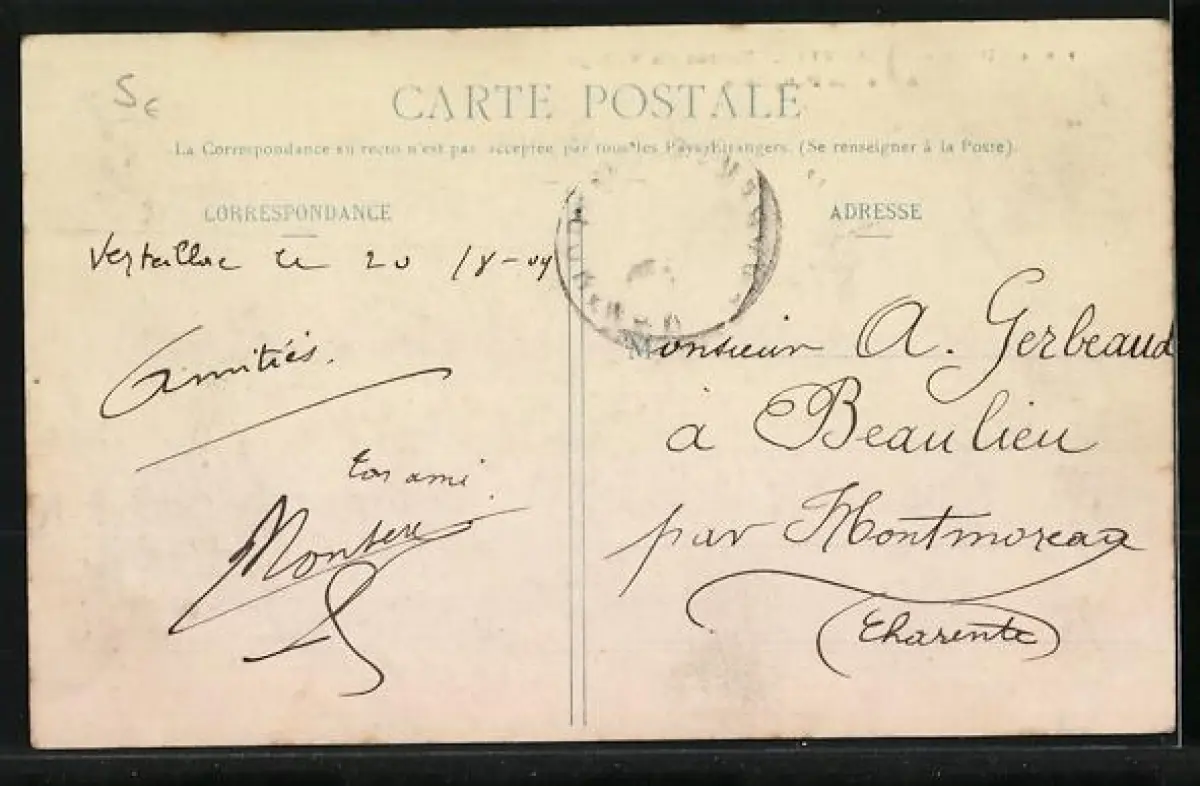 5€
CARTE POSTALE
La Correspondance au recto n'est pas acceptée par tous les Pays Étrangers. (Se renseigner à la Poste).
CORRESPONDANCE
ADRESSE
Verteillac le 20/8-09
Amitiés.
ton ami.
Monsieur A. Gerbeaud
à Beaulieu
par Montmoreau
(Charente)